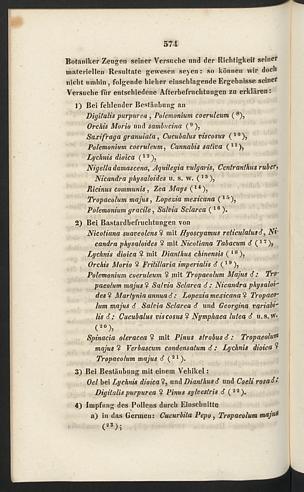 574
Botaniker Zeugen seiner Versuche und der Richtigkeit seiner
materiellen Resultate gewesen seyen: so können wir doch
nicht umhin, folgende hieher einschlagende Ergebnisse seiner
Versuche für entschiedene Afterbefruchtungen zu erklären:
1) Bei fehlender Bestäubung an
Digitalis purpurea, Polemonium coeruleum (8),
Orchis Morio und sambucina (9),
Saxifraga granulata, Cucubalus viscosus (10),
Polemonium coeruleum, Cannabis sativa (11),
Lychnis dioica (12),
Nigella damascena, Aquilegia vulgaris, Centranthus ruber,
Nicandra physaloides u. s. w. (13),
Ricinus communis, Zea Mays (14),
Tropaeolum majus, Lopezia mexicana (15),
Polemonium gracile, Salvia Sclarea (16).
2) Bei Bastardbefruchtungen von
Nicotiana suaveolens ♀ mit Hyoscyamus reticulatus ♂, Ni-
candra physaloides ♀ mit Nicotiana Tabacum ♂ (17),
Lychnis dioica ♀ mit Dianthus chinensis (18),
Orchis Morio ♀ Fritillaria imperialis ♂ (19),
Polemonium coeruleum ♀ mit Tropaeolum Majus ♂: Tro-
paeolum majus ♀ Salvia Sclarea ♂: Nicandra physaloi-
des ♀ Martynia annua ♂: Lopezia mexicana ♀ Tropaeo-
lum majus ♂ Salvia Sclarea ♂ und Georgina variabi-
lis ♂: Cucubalus viscosus ♀ Nymphaea lutea ♂ u. s. w.
(20),
Spinacia oleracea ♀ mit Pinus strobus ♂: Tropaeolum
majus ♀ Verbascum condensatum ♂: Lychnis dioica ♀
Tropaeolum majus ♂ (21).
3) Bei Bestäubung mit einem Vehikel:
Oel bei Lychnis dioica ♀, und Dianthus ♂ und Coeli rosa ♂:
Digitalis purpurea ♀ Pinus sylvestris ♂ (22).
4) Impfung des Pollens durch Einschnitte
a) in das Germen: Cucurbita Pepo, Tropaeolum majus
(23);